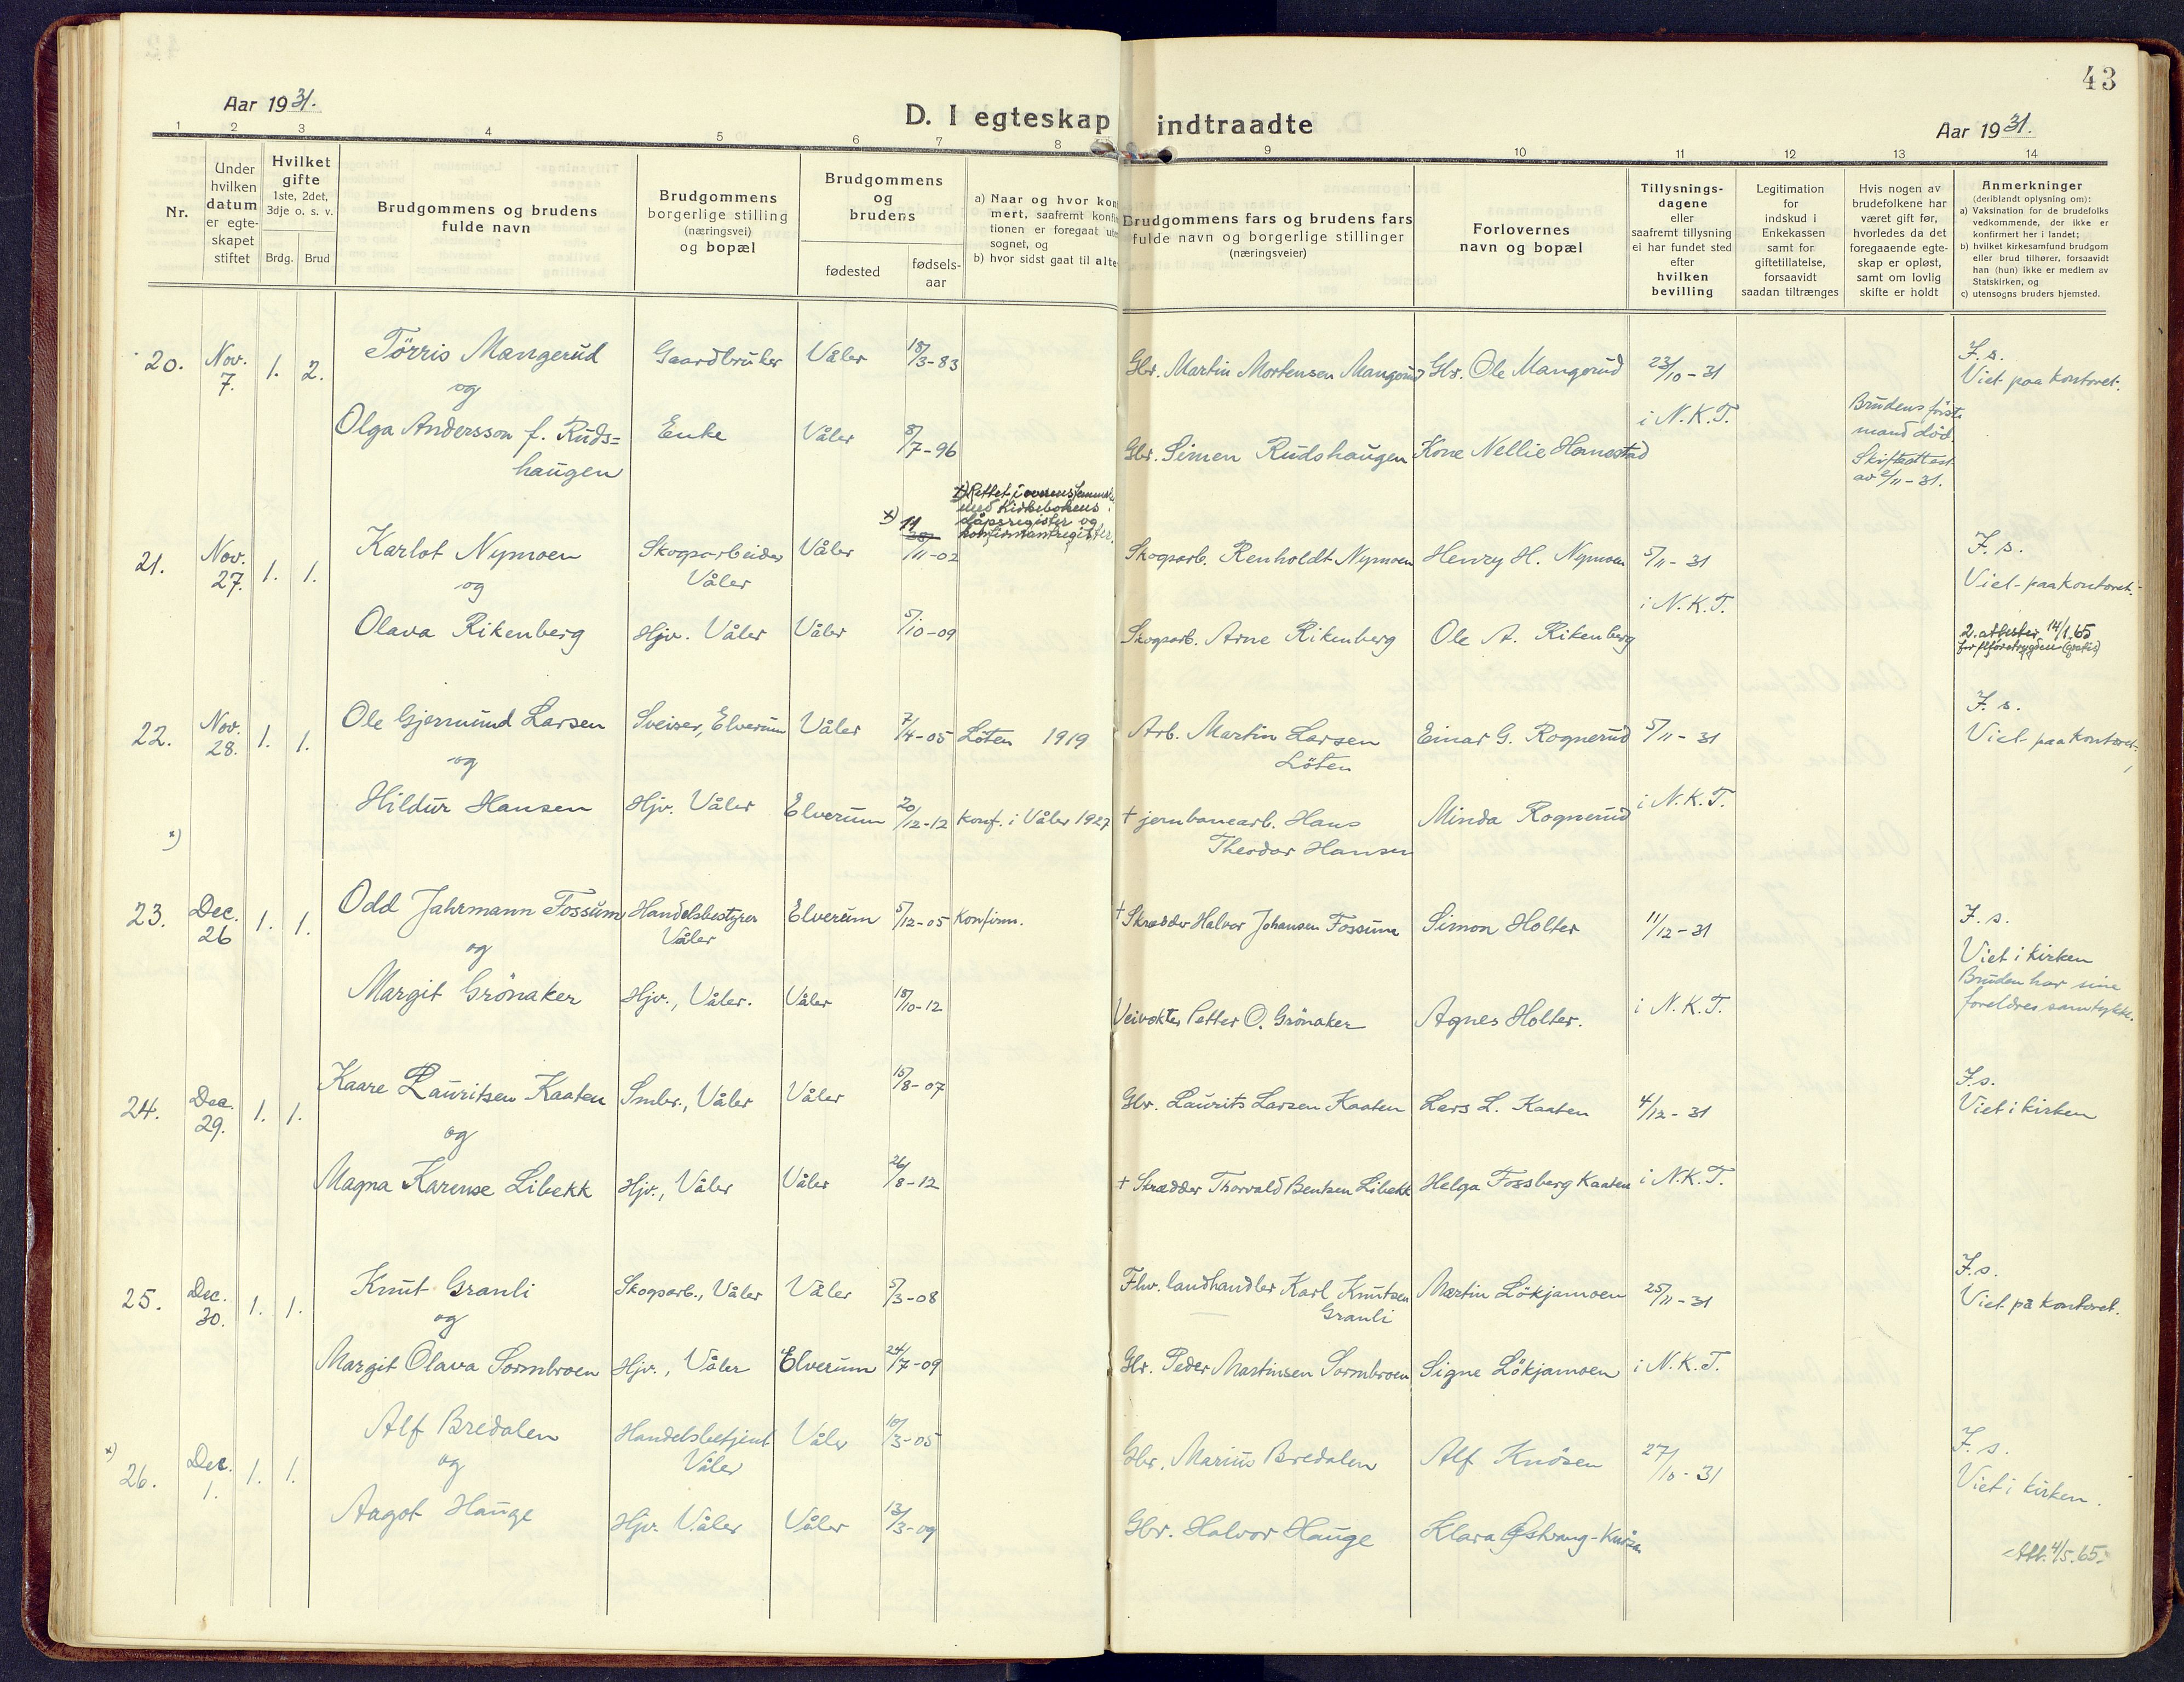 43
Aar 1931.
D. I egteskap indtraadte
Aar 1931.
1 2 3 4 5 6 7 8 9 10 11 12 13 14
Nr.
Under hvilken datum er egteskapet stiftet
Hvilket gifte 1ste, 2det, 3dje o. s. v.
Brdg. Brud
Brudgommens og brudens fulde navn
Brudgommens borgerlige stilling (næringsvei) og bopæl
Brudgommens og brudens
fødested
fødselsaar
a) Naar og hvor kon
mert, saafremt konfi
tionen er foregaat ute
sognet, og
b) hvor sidst gaat til alte
Brudgommens fars og brudens fars
fulde navn og borgerlige stillinger
(næringsveier)
Forlovernes
navn og bopæl
Tillysnings-
dagene
eller
saafremt tillysning
ei har fundet sted
efter
hvilken
bevilling
Legitimation
for
indskud i
Enkekassen
samt for
giftetillatelse,
forsaavidt
saadan tiltrænges
Hvis nogen av
brudefolkene har
været gift før,
hvorledes da det
foregaaende egte-
skap er opløst,
samt om lovlig
skifte er holdt
Anmerkninger
(deriblandt oplysning om):
a) Vaksination for de brudefolks
vedkommende, der ikke er
konfirmert her i landet;
b) hvilket kirkesamfund brudgom
eller brud tilhører, forsaavidt
han (hun) ikke er medlem av
Statskirken, og
c) utensogns bruders hjemsted.
20. Nov. 7. 1. 2. Törris Mangerud Gaardbruker Våler 18/3-83 Gbr. Martin Mortensen Mangerud Gbr. Ole Mangerud 23/10-31 F. s.
Viet paa kontoret.
og
i N.K.T. Brudens første
mand död.
Skifteattest
av 2/11-31.
Olga Andersson f. Ruds=
haugen Enke Våler 8/7-96 Gbr. Simen Rudshaugen Kone Nellie Hanestad
x) Rettet i overensstemmelse
med Kirkebokens
dåpsregister og
konfirmantregister.
21. Nov. 27. 1. 1. Karlot Nymoen Skogsarbeider
Våler Våler x) 11/11-02 Skogsarb. Renholdt Nymoen Henry H. Nymoen 5/11-31 F. s.
Viet paa kontoret.
og
i N.K.T.
Olava Rikenberg Hjv. Våler Våler 5/10-09 Skogsarb. Arne Rikenberg Ole A. Rikenberg
2. attester 14/1.65
22. Nov. 28. 1. 1. Ole Gjermund Larsen Sveiser, Elverum Våler 7/4-05 Löten 1919 Arb. Martin Larsen
Löten Einar G. Rognerud 5/11-31 F. s.
Viet paa kontoret.
og
Hildur Hansen Hjv. Våler Elverum 20/12-12 Konf. i Våler 1927 † jernbanearb. Hans
Theodor Hansen Minda Rognerud i N.K.T.
x)
23. Dec. 26 1. 1. Odd Jahrmann Fossum Handelsbestyrer
Våler Elverum 5/12-05 Konfirm. † Skrædder Halvor Johansen Fossum Simon Holter 11/12-31 F. s.
Viet i kirken
og
Bruden har sine
foreldres samtykke.
Margit Grönaker Hjv., Våler. Våler 18/10-12 Veivokter Petter O. Grönaker Agnes Holter. i N.K.T.
24. Dec. 29. 1. 1. Kaare Lauritsen Kaaten Smbr., Våler Våler 15/8-07 Gbr. Laurits Larsen Kaaten Lars L. Kaaten 4/12-31 F.s.
Viet i kirken
og
Magna Karense Libekk Hjv., Våler Våler 26/8-12 † Skrædder Thorvald Bentsen Libekk Helga Fossberg Kaaten i N.K.T.
25. Dec. 30. 1. 1. Knut Granli Skogsarb., Våler Våler 5/3-08 Fhv. landhandler Karl Knutsen
Granli Martin Lökjamoen 25/11-31 F.s.
Viet på kontoret.
og
Margit Olava Sormbroen Hjv., Våler Elverum 24/7-09 Gbr. Peder Martinsen Sormbroen Signe Lökjamoen i N.K.T.
x) 26. Dec. 1. 1. 1. Alf Bredalen Handelsbetjent
Våler Våler 10/3-05 Gbr. Marius Bredalen Alf Knösen 27/10-31 F. s.
Viet i kirken.
og
Aagot Hauge Hjv. Våler Våler 13/3-09 Gbr. Halvor Hauge Klara Østvang-Knösen
Att. 4/5.65.